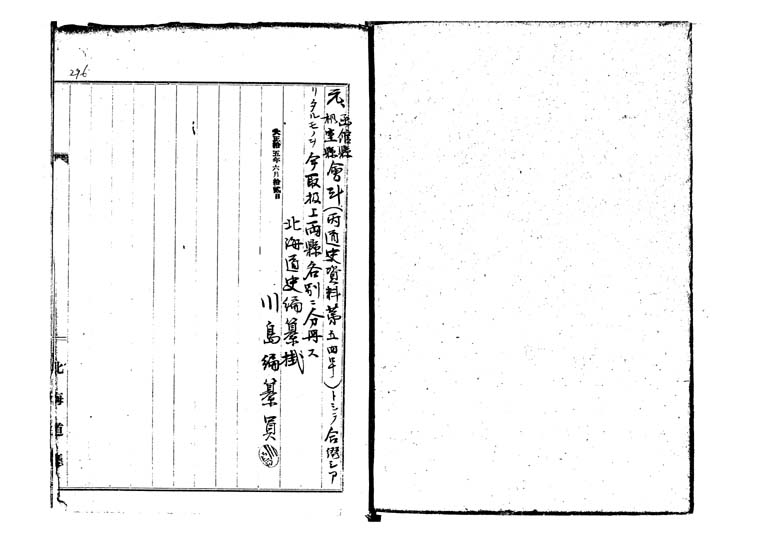 元 函館縣 根室縣 會計(丙道史資料第五四号)トシテ合綴シア
リタルモノヲ今取扱上両縣各別ニ分冊ス
大正拾五年六月拾貳日
北海道史編纂掛
川島編纂員
北海道廳
296